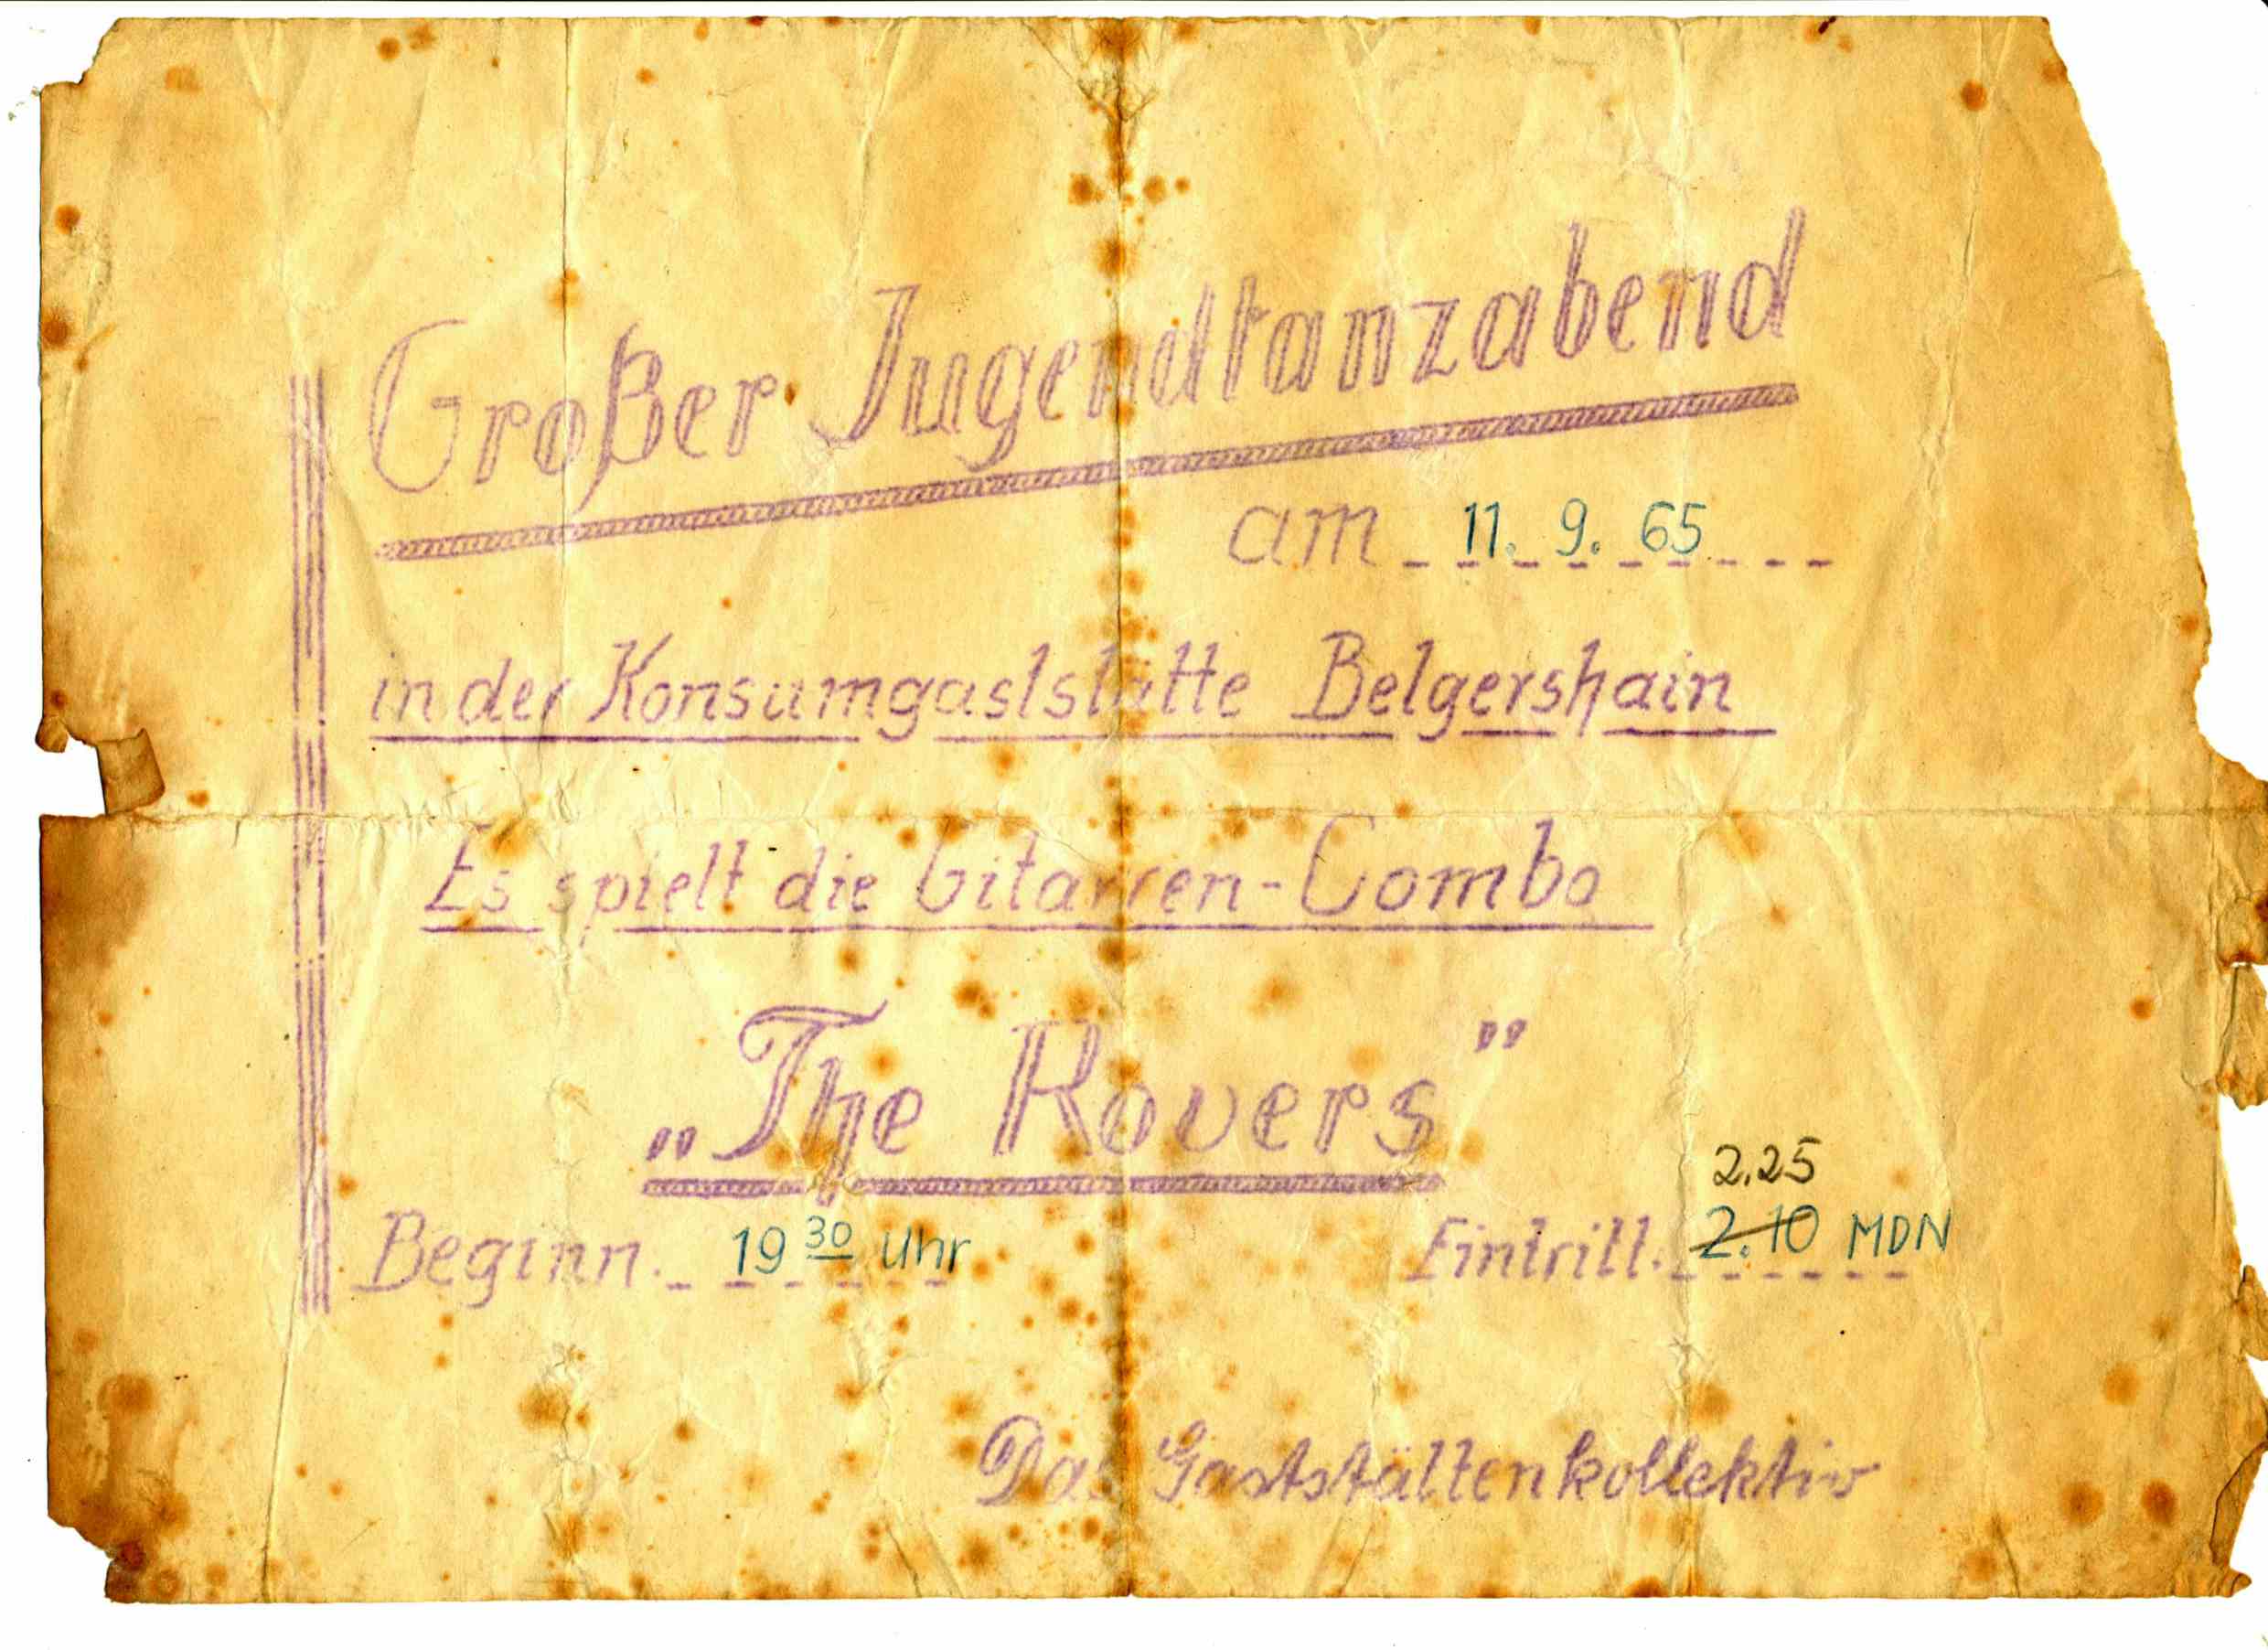 Großer Jugendtanzabend
am 11. 9. 65
in der Konsumgaststätte Belgershain
Es spielt die Gitarren-Combo
„The Rovers”
2.25
Beginn: 19 30 Uhr Eintritt: 2.10 MDN
Das Gaststättenkollektiv